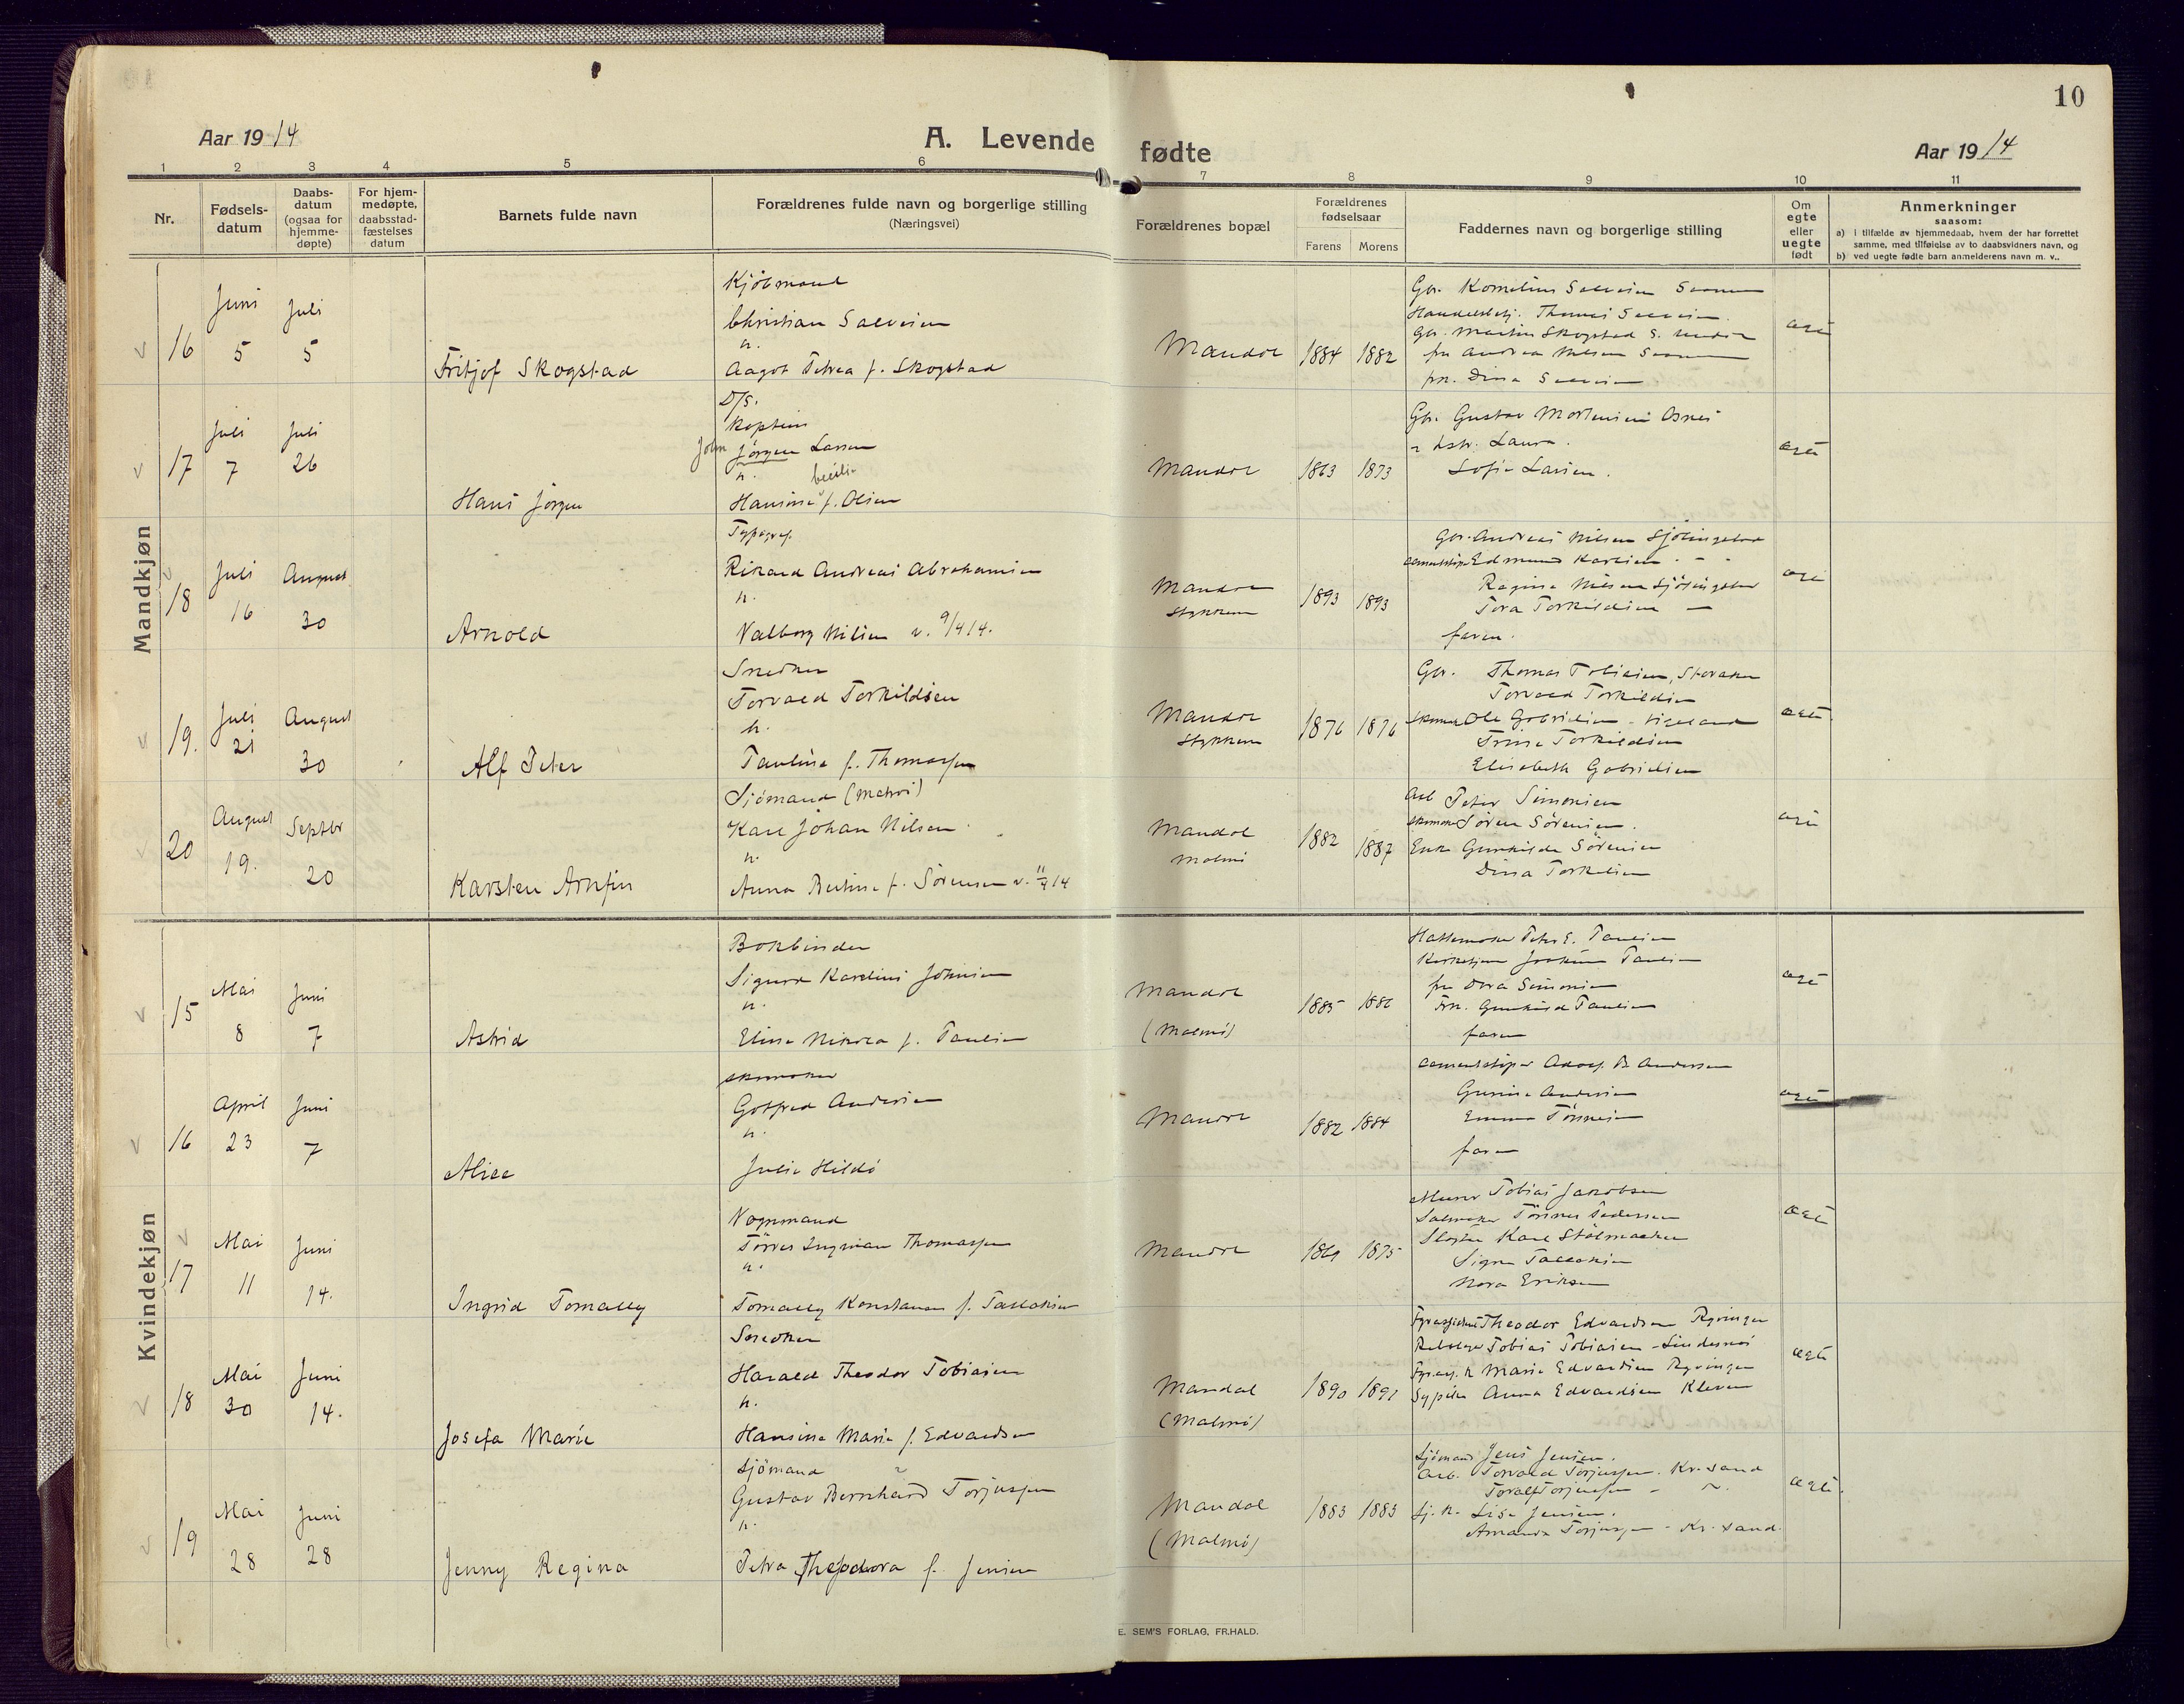 10
Aar 19 14
A. Levende fødte
Aar 19 14
1 2 3 4 5 6 7 8 9 10 11
Nr.
Fødsels-
datum
Daabs-
datum
(ogsaa for
hjemme-
døpte)
For hjem-
medøpte,
daabsstad-
fæstelses
datum
Barnets fulde navn
Forældrenes fulde navn og borgerlige stilling
(Næringsvei)
Forældrenes bopæl
Forældrenes
fødselsaar
Farens Morens
Faddernes navn og borgerlige stilling
Om
egte
eller
uegte
født
Anmerkninger
saasom:
a) i tilfælde av hjemmedaab, hvem der har forrettet
samme, med tilføielse av to daabsvidners navn, og
b) ved uegte fødte barn anmelderens navn m. v..
Mandkjøn
16
Juni
5
Juli
5
Fritjof Skogstad
Kjöbmand
Christian Salvesen
h.
Aagot Petrea f. Skogstad
Mandal
1884 1882
Handelsbetj. Thomas Salvesen.
frk. Dina Salvesen
17
Juli
7
Juli
26
Hans Jörgen
D/S.
Kaptein
John Jörgen Larsen
h.
Hansine f. Olsen
Mandal
1863 1873
Gbr. Gustav Mortensen
Hstr. Laura.
Sofie Larsen.
18
Juli
16
August
30
Arnold
Typograf
Rikard Andreas Abrahamsen
h.
Valborg Nilsen v. 9/4 14.
Mandal
1893 1893
Gbr. Andreas Nilsen
Edmund Karlsen
Regine Nilsen
Tora Torkildsen
faren.
19.
Juli
21
August
30
Alf Peter
Snedker
Torvald Torkildsen
h.
Pauline f. Thomassen
Mandal
1876 1876
Gbr. Thomas Tobiasen, Storaker
Torvald Torkildsen
Ole Gabrielsen - Vigeland
Trine Torkildsen
Elisabeth Gabrielsen
20
August
19.
Septbr
20
Karsten Arnfin
Sjömand (Matros)
Karl Johan Nilsen
h.
Anna Bertine f. Sörensen v. 11/4 14
Mandal
Malmö
1882 1887
Arb Peter Simonsen
Sören Sörensen.
Enke Gunhilde Sörensen
Dina Torkelsen
Kvindekjøn
15
Mai
8
Juni
7
Astrid
Bokbinder
Sigurd Karelius Johnsen
h.
Eline Nikolea f. Paulsen
Mandal
(Malmö)
1885 1886
Hattemaker Peter E. Paulsen
Joakim Paulsen
fru Dora Simonsen
Frk. Gunhild Paulsen
faren
16
April
23
Juni
7
Alice
skomaker
Gotfred Andersen
h.
Julie Hildö
Mandal
1882 1884
Cementstöper Adolf B. Andersen
Gunine Andersen
Emma Tönnesen
faren
17
Mai
11
Juni
14.
Ingrid Tomally
Vognmand
Törres Ingman Thomassen
h.
Tomally Konstanse f. Tallaksen
Mandal
1869 1875
Murer Tobias Jakobsen
Salmaker Tönnes Pedersen
Karl Stölmacker
Signe Tallaksen
Nora Eriksen
18
Mai
30
Juni
14.
Josefa Marie
Snedker
Harald Theodor Tobiasen
h.
Hansine Marie f. Edvardsen
Mandal
(Malmö)
1890 1891
Theodor Edvardsen Ryvingen
Tobias Tobiasen - Lindesnes
Marie Edvardsen Ryvingen
Sypike Anna Edvardsen Kleven
egte
19
Mai
28
Juni
28
Jenny Regina
Sjömand
Gustav Bernhard Torjussen
h.
Petra Theodora f. Jensen
Mandal
(Malmö)
1883 1883
Sjömand Jens Jensen.
Arb. Torvald Torjussen. Kr.sand
Toralf Torjussen
Sj. h. Lise Jensen.
Amanda Torjussen - Kr.sand.
egte.
E. SEM'S FORLAG, FR.HALD.